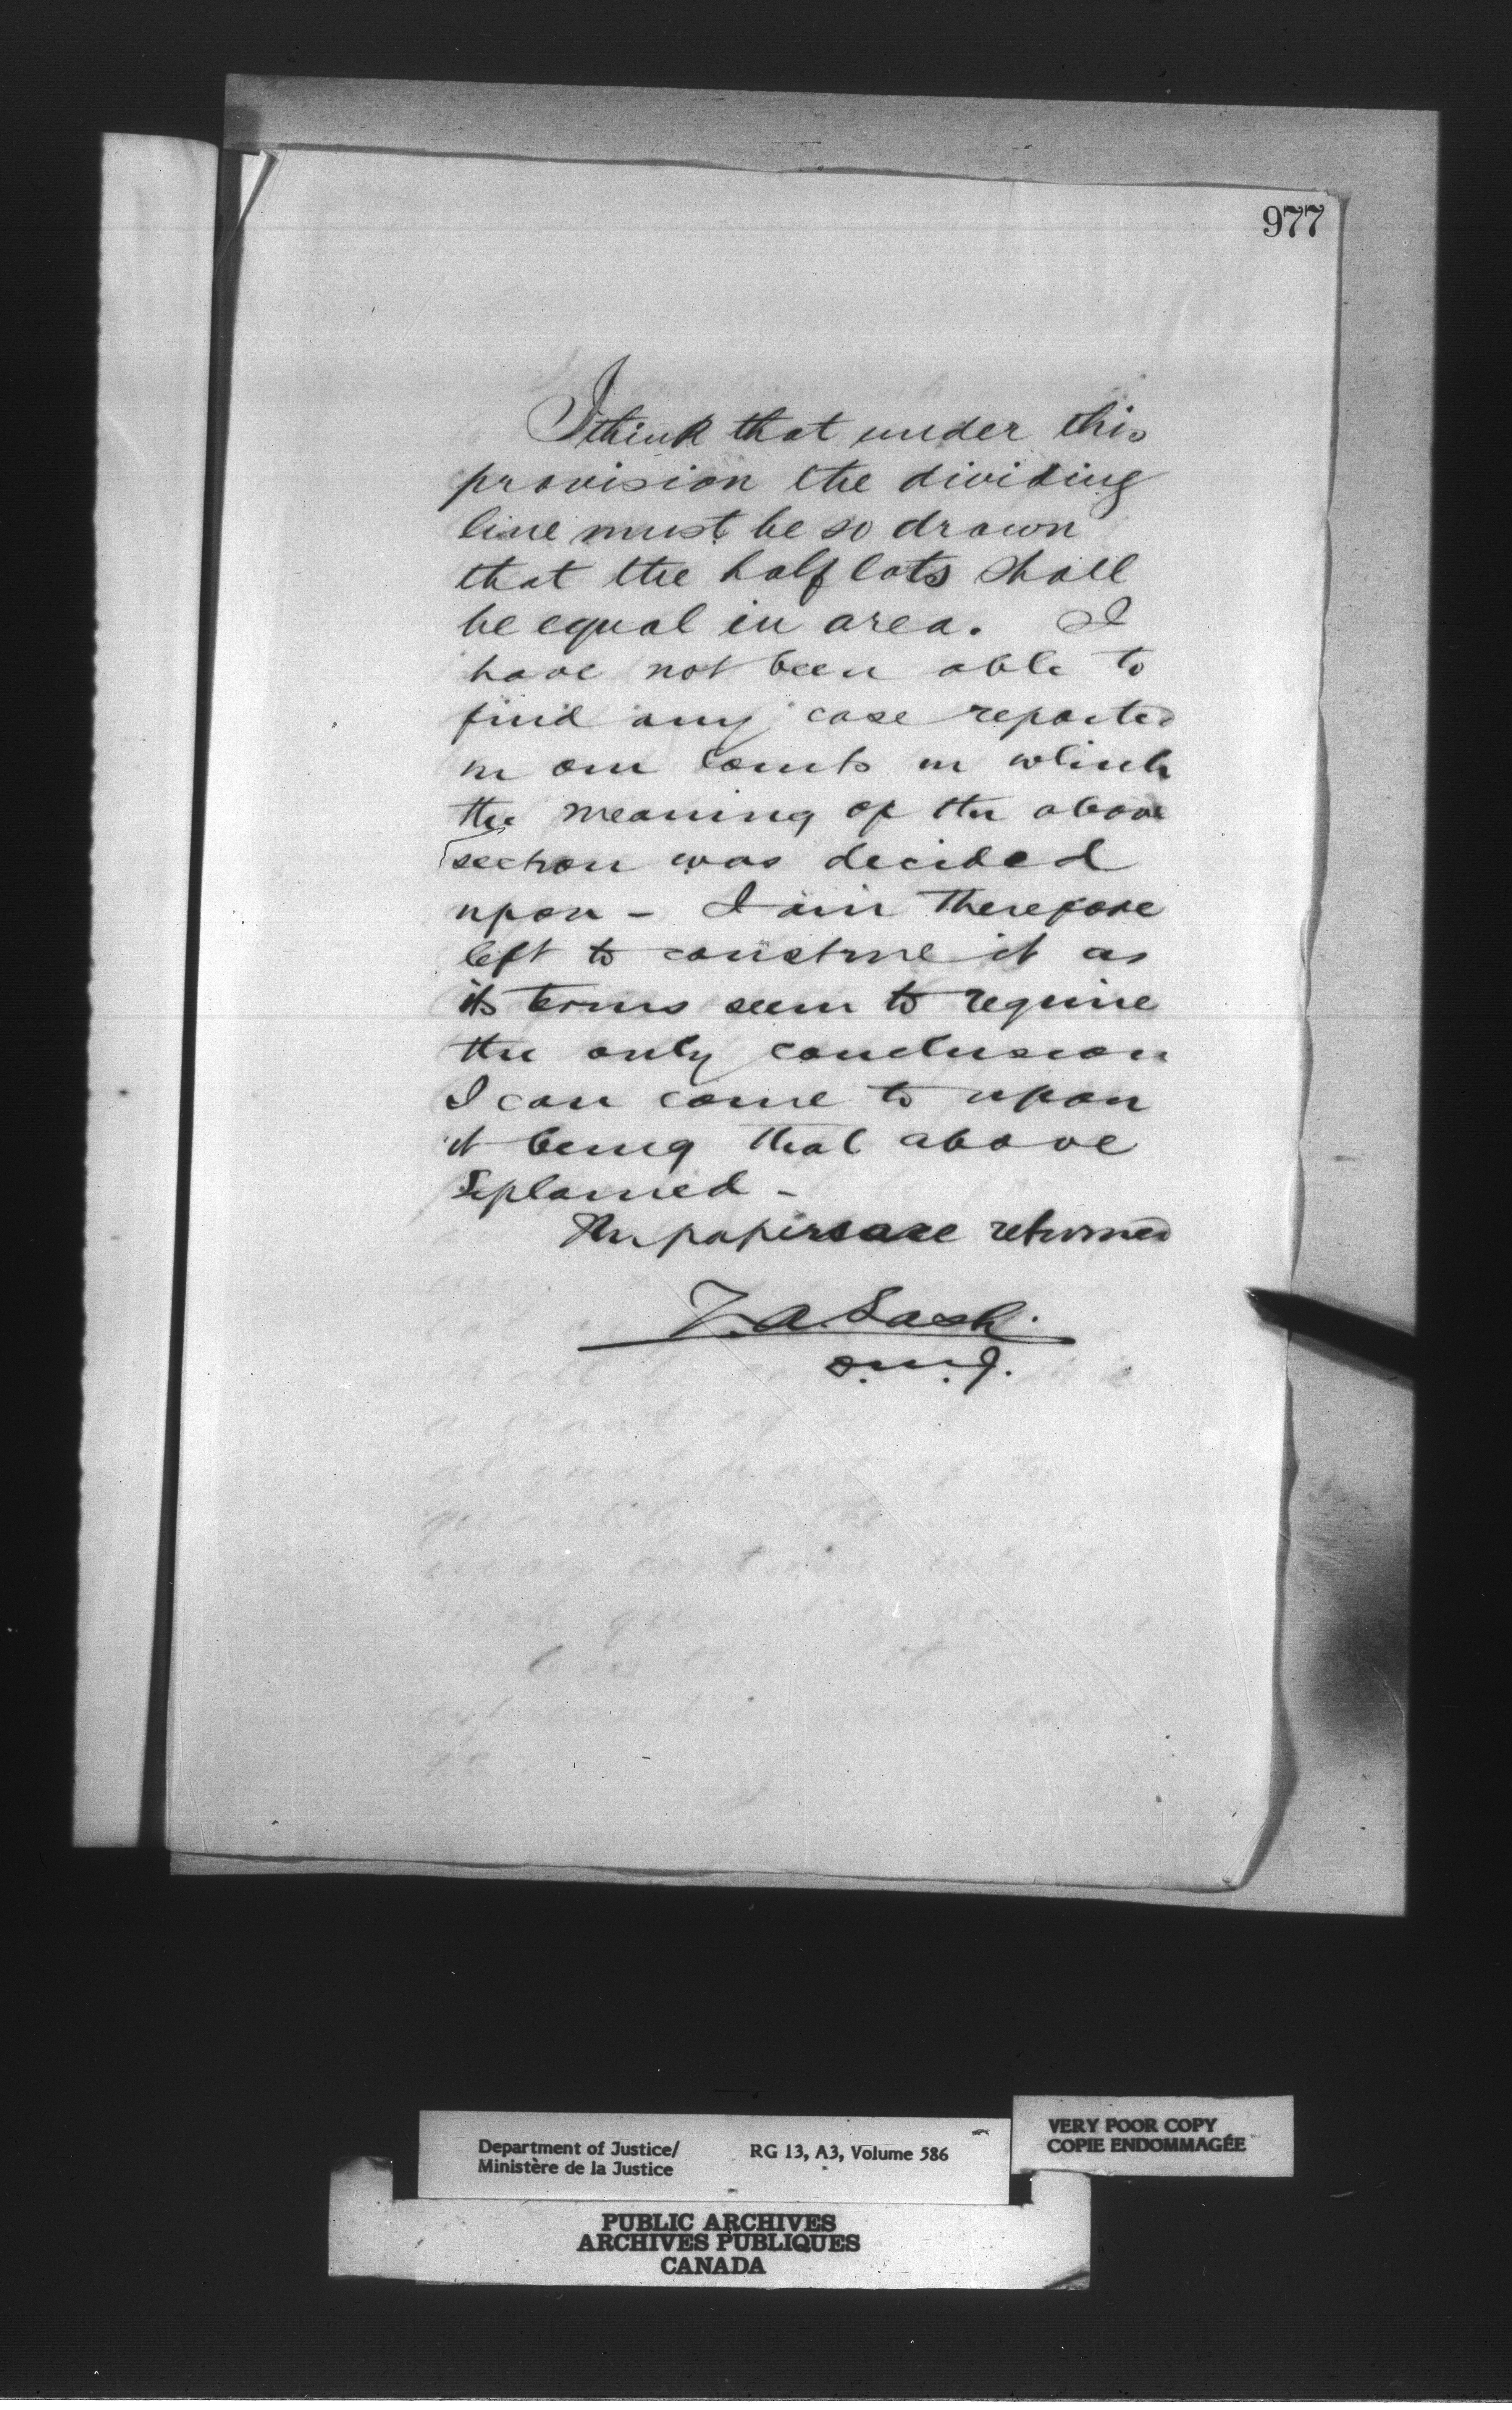 977
I think that under this
provision the dividing
line must be so drawn
that the half lots shall
be equal in area. I
have not been able to
find any case reported
in our Courts in which
the meaning of the above
section was decided
upon - I am therefore
left to construe it as
its terms seem to require
the only conclusion
I can come to upon
it being that above
explained -
The papers are returned
Z. A. Lash.
D. M. J.
Department of Justice/
Ministère de la Justice
RG 13, A3, Volume 586
VERY POOR COPY
COPIE ENDOMMAGÉE
PUBLIC ARCHIVES
ARCHIVES PUBLIQUES
CANADA